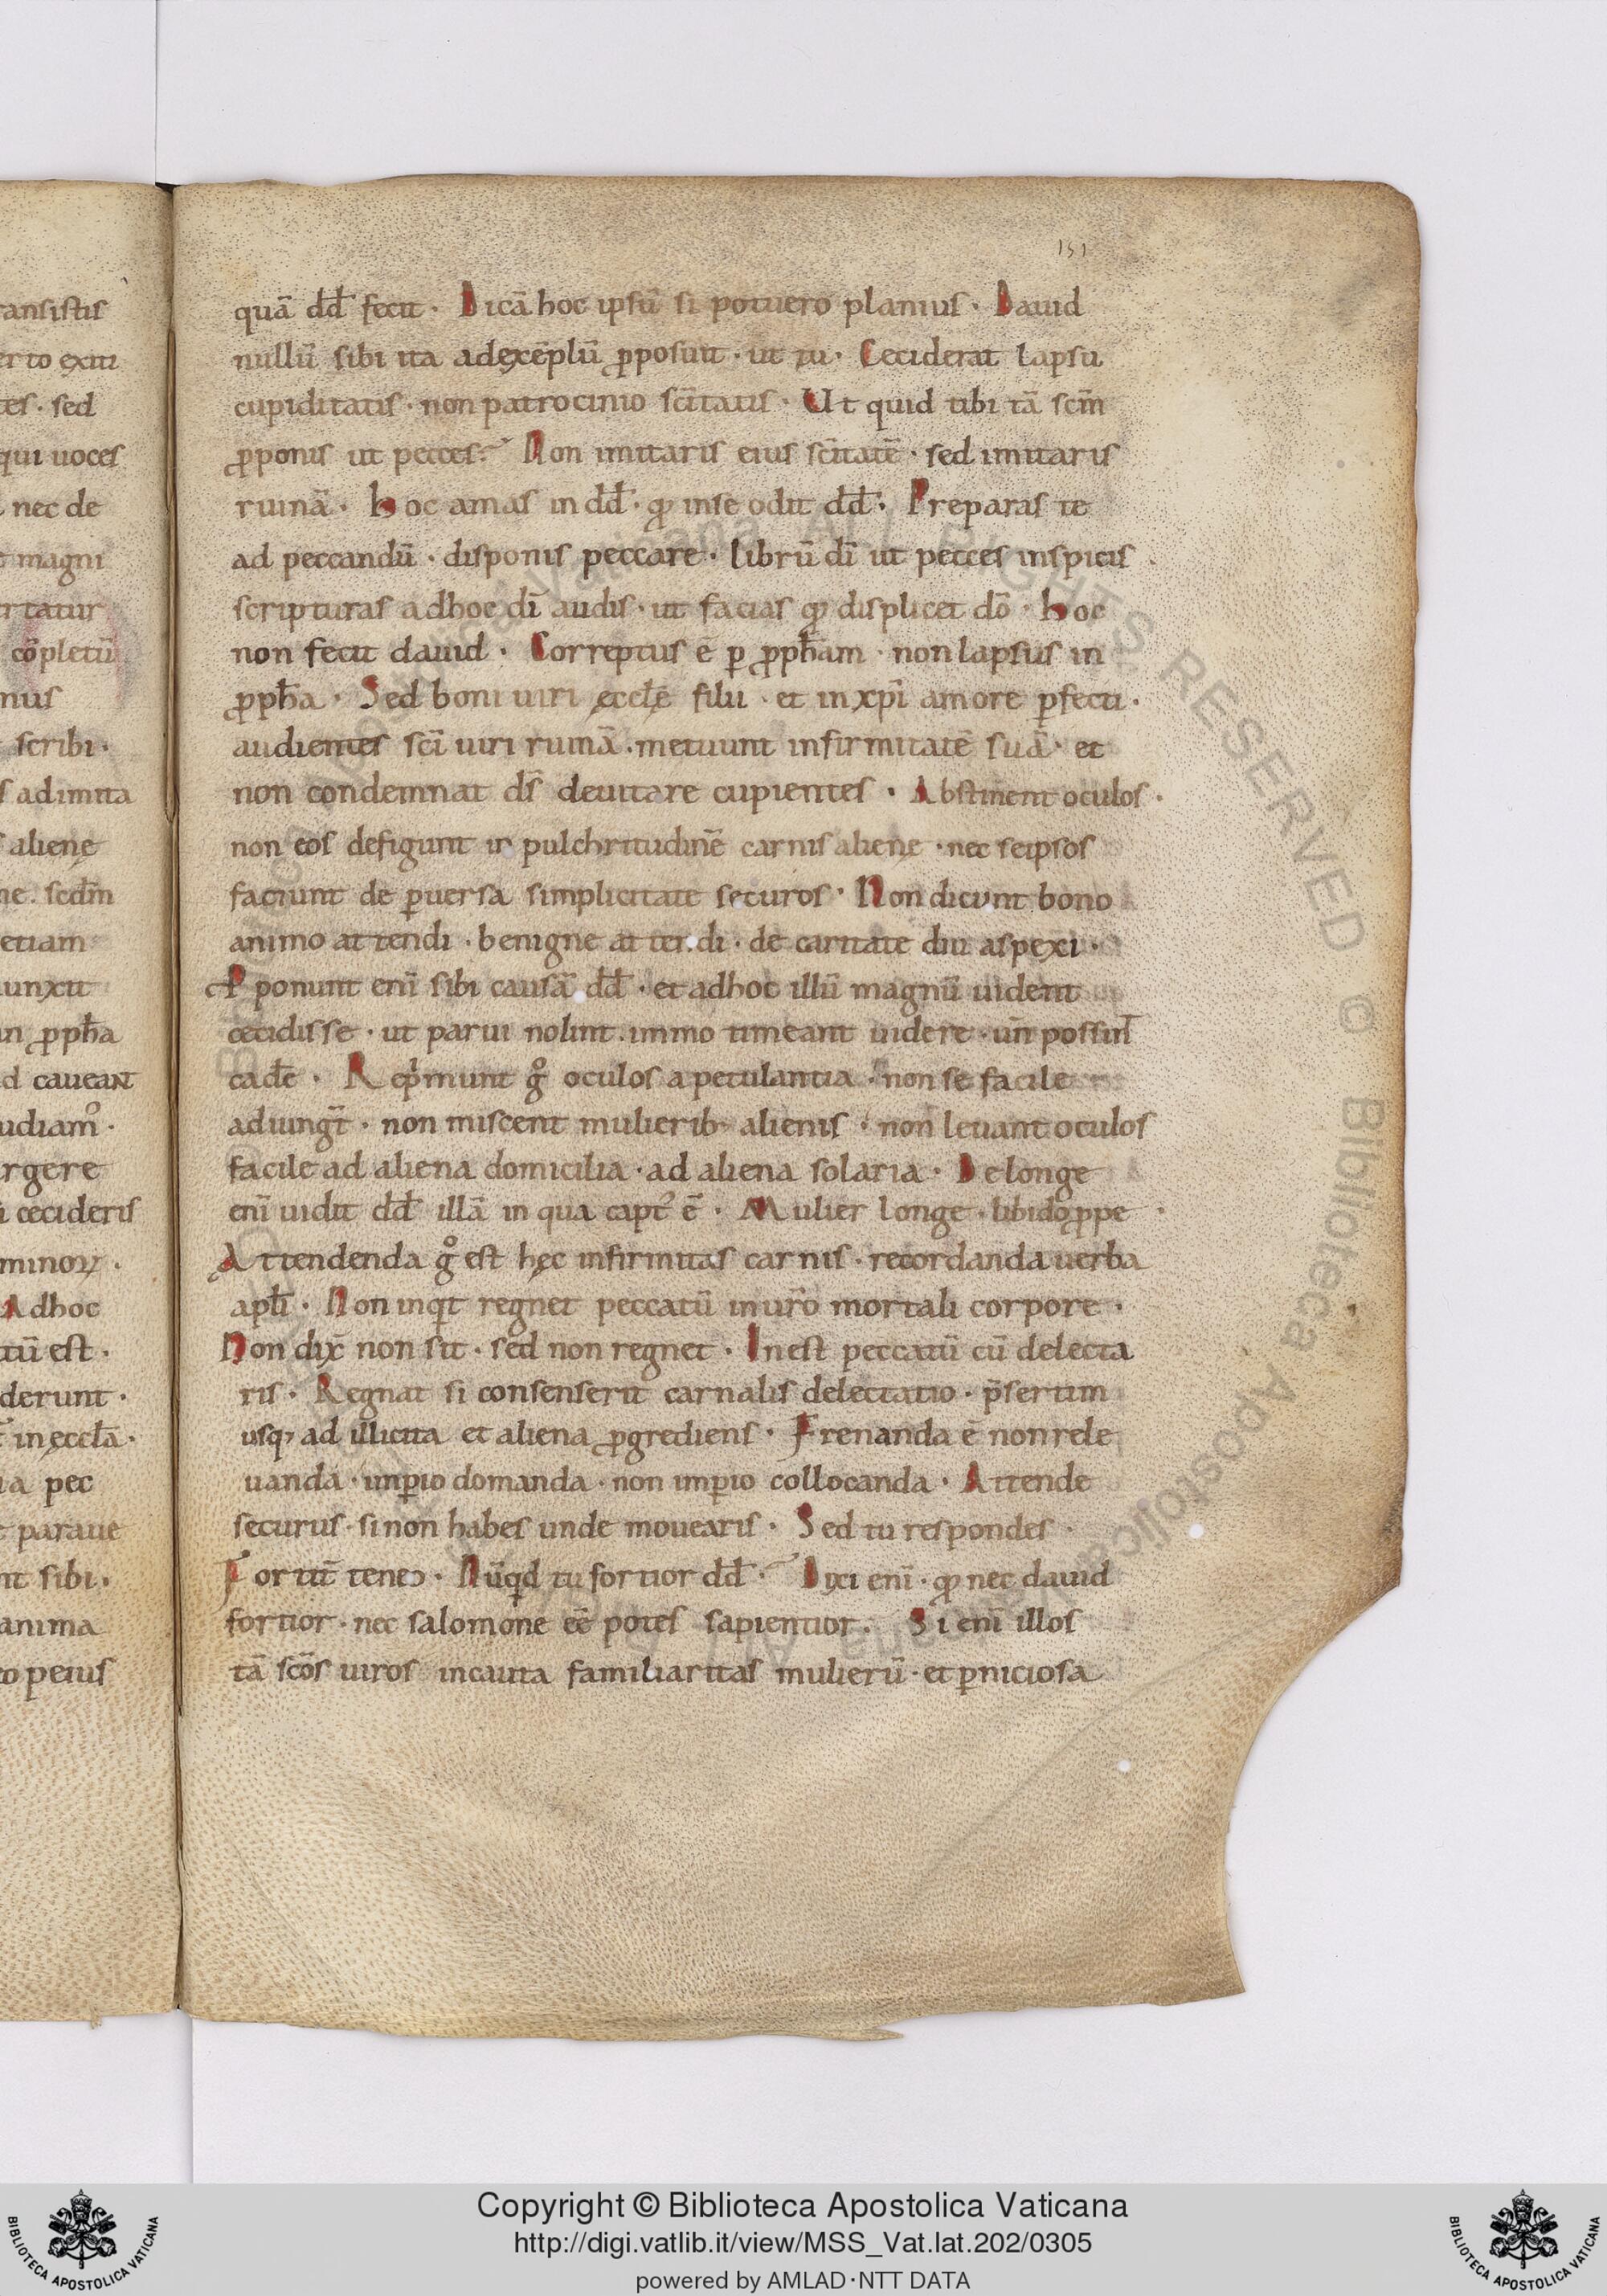 151
ansistis
erto exiu
tes · sed
qui uoces
nec de
magni
rtatur
cõpletũ
nus
scribi ·
s adimita
alienę
ne . scdm̃
etiam
unxit
in ꝓph̃a
d caueant
udiamꝰ ·
rgere
i cecideris
minoꝝ .
Adhoc
tũ est ·
derunt ·
in ęccl̃a ·
ia pec
paraue
nt sibi .
anima
o peius
quã dd̃ fecit · Dicã hoc ipsũ si potuero planius · Dauid
nullũ sibi ita adexẽplũ ꝓposuit · ut tu · Ceciderat lapsu
cupiditatis · non patrocinio sc̃itatis · Ut quid tibi tã scm̃
ꝓponis ut pecces? Non imitaris eius sc̃itatẽ · sed imitaris
ruinã · Hoc amas in dd̃ · qđ inse odit dd̃ · Preparas te
ad peccandũ · disponis peccare · librũ dĩ ut pecces inspicis ·
scripturas adhoc dĩ audis · ut facias qđ displicet dõ · Hoc
non fecit dauid · Correptus ẽ ꝑ ꝓph̃am · non lapsus in
ꝓph̃a · Sed boni uiri ęccl̃ę filii · et in xp̃i amore ꝑfecti ·
audientes sc̃i uiri ruinã · metuunt infirmitatẽ suã · et
non condemnat dr̃ deuitare cupientes · Abstinent oculos ·
non eos defigunt in pulchritudinẽ carnis alienę · nec seipsos
faciunt de ꝑuersa simplicitate securos · Non dicunt bono
animo attendi · benigne attendi · de caritate diu aspexi ·
Pponunt enĩ sibi causã dd̃ · et adhoc illũ magnũ uident
cecidisse · ut parui nolint . immo timeant uidere · uñ possint
cadẽ · Rep̃munt gº oculos a petulantia · non se facile
adiungt̃ · non miscent mulierib; alienis · non leuant oculos
facile ad aliena domicilia · ad aliena solaria · De longe
enĩ uidit dd̃ illã in qua captꝰ ẽ · Mulier longe · libido ꝓpe ·
Attendenda gº est hęc infirmitas carnis · recordanda uerba
apl̃i · Non inqt̃ regnet peccatũ in ur̃o mortali corpore ·
Non dix̃ non sit · sed non regnet · Inest peccatũ cũ delecta
ris · Regnat si consenserit carnalis delectatio · p̃sertim
usq; ad illicita et aliena ꝓgrediens · Frenanda ẽ non rele
uanda · imꝑio domanda · non imꝑio collocanda · Attende
securus · si non habes unde mouearis · Sed tu respondes ·
Fortit̃ teneo · Nũqd̃ tu fortior dd̃ · Dixi enĩ · qđ nec dauid
fortior · nec salomone eẽ potes sapientior . Si enĩ illos
tã scõs uiros incauta familiaritas mulierũ · et ꝑniciosa
Copyright © Biblioteca Apostolica Vaticana
http://digi.vatlib.it/view/MSS_Vat.lat.202/0305
powered by AMLAD·NTT DATA
BIBLIOTECA APOSTOLICA VATICANA
BIBLIOTECA APOSTOLICA VATICANA